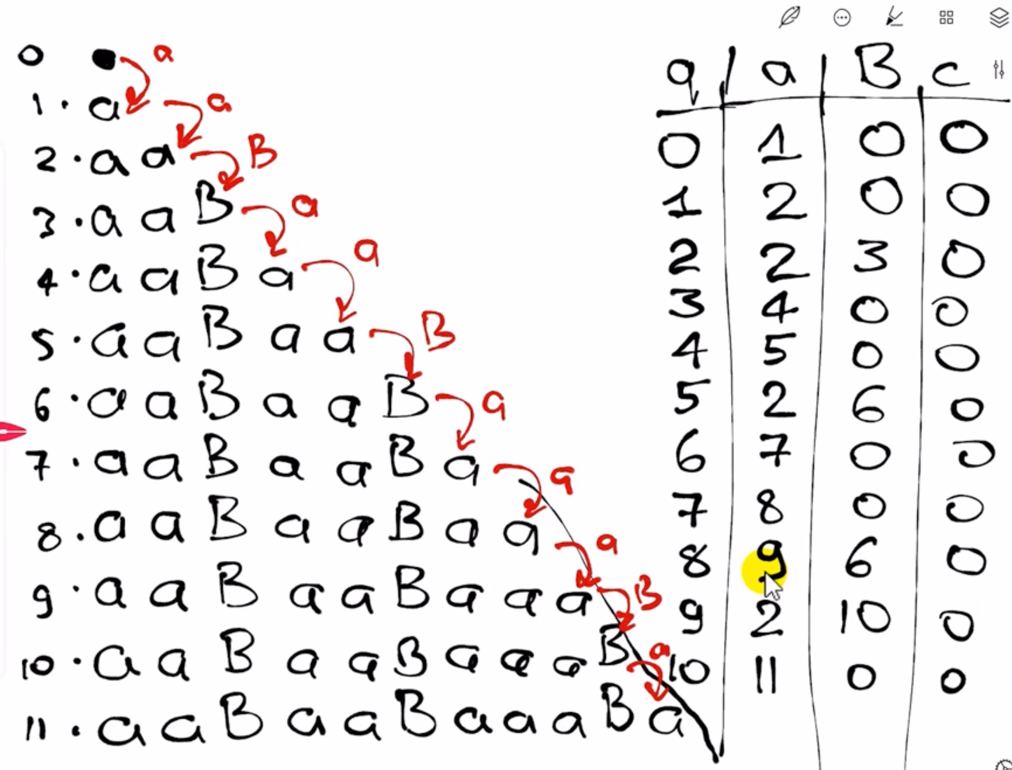 0 • a
1. a a
2. a a B
3. a a B a
4. a a B a a
5. a a B a a B
6. a a B a a B a
7. a a B a a B a a
8. a a B a a B a a a
9. a a B a a B a a a B
10. a a B a a B a a a B a
11. a a B a a B a a a B a
q a B c
0 1 0 0
1 2 0 0
2 2 3 0
3 4 0 0
4 5 0 0
5 2 6 0
6 7 0 0
7 8 0 0
8 9 6 0
9 2 10 0
10 11 0 0